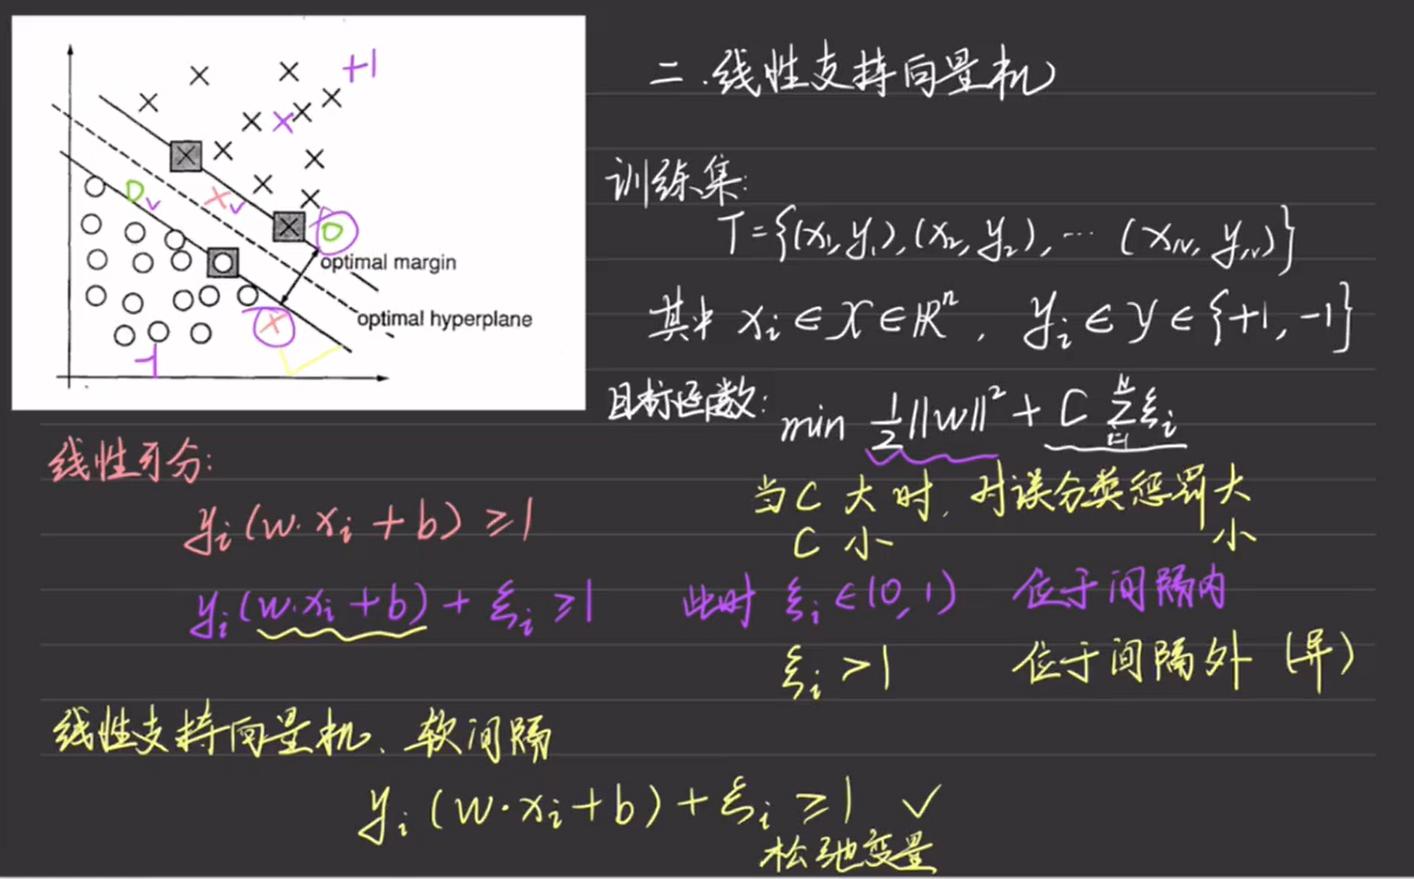 +1
optimal margin
optimal hyperplane
-1
二.线性支持向量机
训练集:
T={(x₁,y₁),(x₂,y₂),… (x_N,y_N)}
其中 xᵢ∈X∈ℝⁿ, yᵢ∈Y∈{+1,-1}
目标函数: min ½||w||² + C Σᵢ₌₁ᴺ ξᵢ
当C 大时,对误分类惩罚大
C 小 小
线性可分:
yᵢ(w·xᵢ+b)≥1
yᵢ(w·xᵢ+b)+ξᵢ≥1 此时 ξᵢ∈(0,1) 位于间隔内
ξᵢ>1 位于间隔外 (异)
线性支持向量机、软间隔
yᵢ(w·xᵢ+b)+ξᵢ≥1 ✓
松弛变量